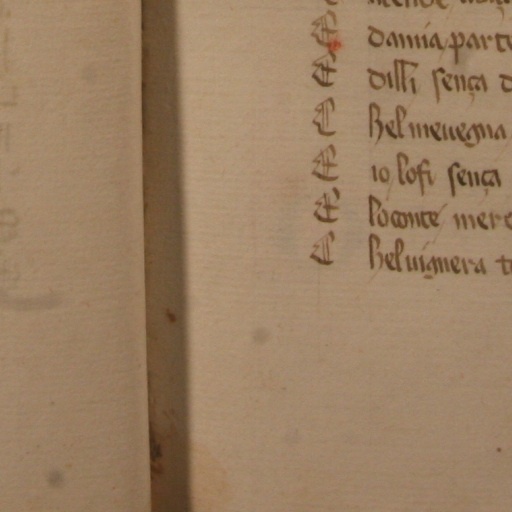 damia parte
dilli sença d
hel meuegna
io lofi sença
loconte merc
hel uignera t